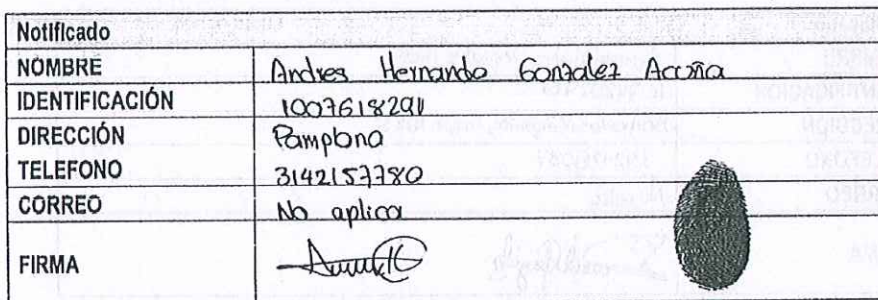 Notificado
NOMBRE Andres Hernando Gonzalez Acuña
IDENTIFICACIÓN 1007618291
DIRECCIÓN Pamplona
TELEFONO 3142157780
CORREO No aplica
FIRMA